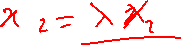 x 2 = λ x 2